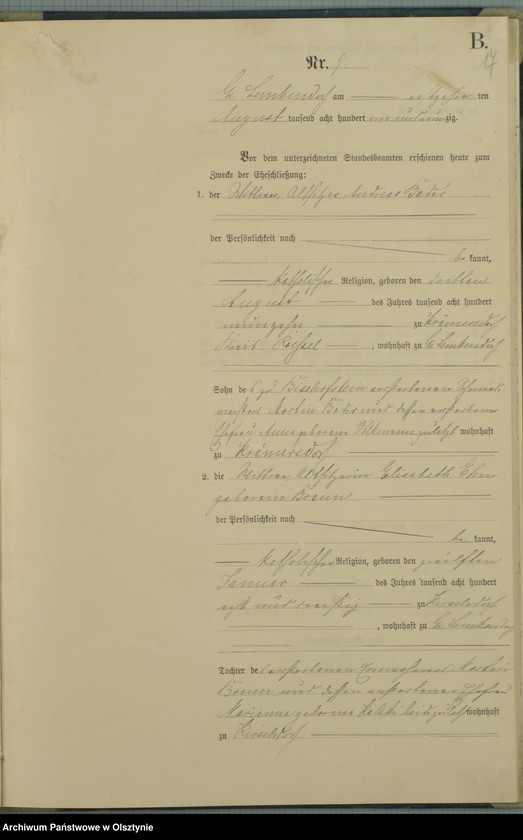 B.
17
Nr. 9.
Gr. Lemkendorf am achtzehn ten
August tausend acht hundert ein und neunzig.
Vor dem unterzeichneten Standesbeamten erschienen heute zum
Zwecke der Eheschließung:
1. der Wittwer, Altsitzer Andreas Bader
der Persönlichkeit nach
be kannt,
katholischer Religion, geboren den dritten
August des Jahres tausend acht hundert
neunzehn zu Krämersdorf
Kreis Rößel, wohnhaft zu Gr. Lemkendorf
Sohn des zu Bischofstein verstorbenen
und dessen verstorbenen
Ehefrau Anna geborene zuletzt wohnhaft
zu Krämersdorf
2. die Wittwe, Altsitzerin Elisabeth
geborene Braun
der Persönlichkeit nach
be kannt,
katholischer Religion, geboren den zwölften
Januar des Jahres tausend acht hundert
acht und dreißig zu
, wohnhaft zu Gr. Lemkendorf
Tochter des verstorbenen
Braun und dessen verstorbenen Ehefrau
Marianne geborene zuletzt wohnhaft
zu
Archiwum Państwowe w Olsztynie